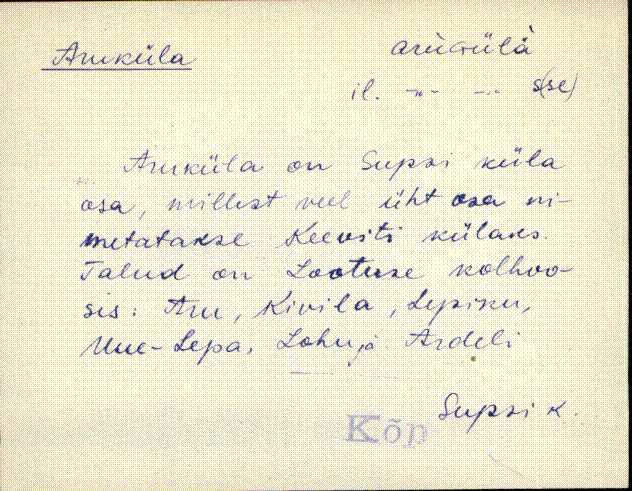 Aruküla aruGülà
il. -„- -.. s(se)
Aruküla on Supsi küla
osa, millest veel üht osa ni-
metatakse Keeviti külaks.
Talud on Lootuse kolhoo-
sis: Aru, Kivila, Lepiku,
Uue-Lepa, Lohu ja Ardeli
Supsi k.
Kõp